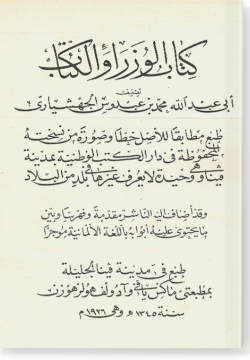 كتاب الوزراء والكتاب
تصنيف
أبي عبد الله محمد بن عبدوس الجهشياري
طبع مطابقا للأصل خطا وصورة من نسخته
المحفوظة في دار الكتب الوطنية بمدينة
فينا وهي وحيدة لا يعرف غيرها في بلد من البلاد
وقد أضاف إليه الناشر مقدمة وفهرسا وبين
ما يحتوي عليه أبوابه باللغة الألمانية موجزا
طبع في مدينة فينا الجليلة
بمطبعتي ماكس يافي وآدولف هولزهوزن
سنة ١٣٤٥ هـ وهي ١٩٢٦ م